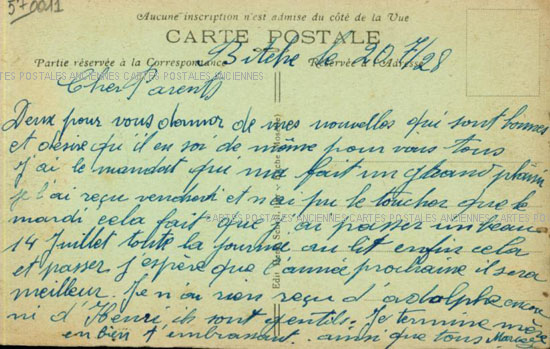 570011
Aucune inscription n'est admise du côté de la Vue
CARTE POSTALE
Bitche le 20/7/28
Partie réservée à la Correspondance
Réservée à l'Adresse
CARTES POSTALES ANCIENNES CARTES POSTALES ANCIENNES
Cher Parents
Deux pour vous donner de mes nouvelles qui sont bonnes
et désire qu'il en soi de même pour vous tous
J'ai le mandat qui ma fait un grand plaisir
je l'ai reçu vendredi et n'ai pu le toucher que le
mardi cela fait que j'ai passer un beau
CARTES POSTALES ANCIENNES CARTES POSTALES ANCIENNES CARTES POSTALES
14 Juillet toute la journée au lit enfin cela
et passer j'espère que l'année prochaine il sera
meilleur. Je n'ai rien reçu d'adolphe encore
ni d'Henri ils sont gentils. Je termine mère
en bien t'embrassant. ainsi que tous Marcel